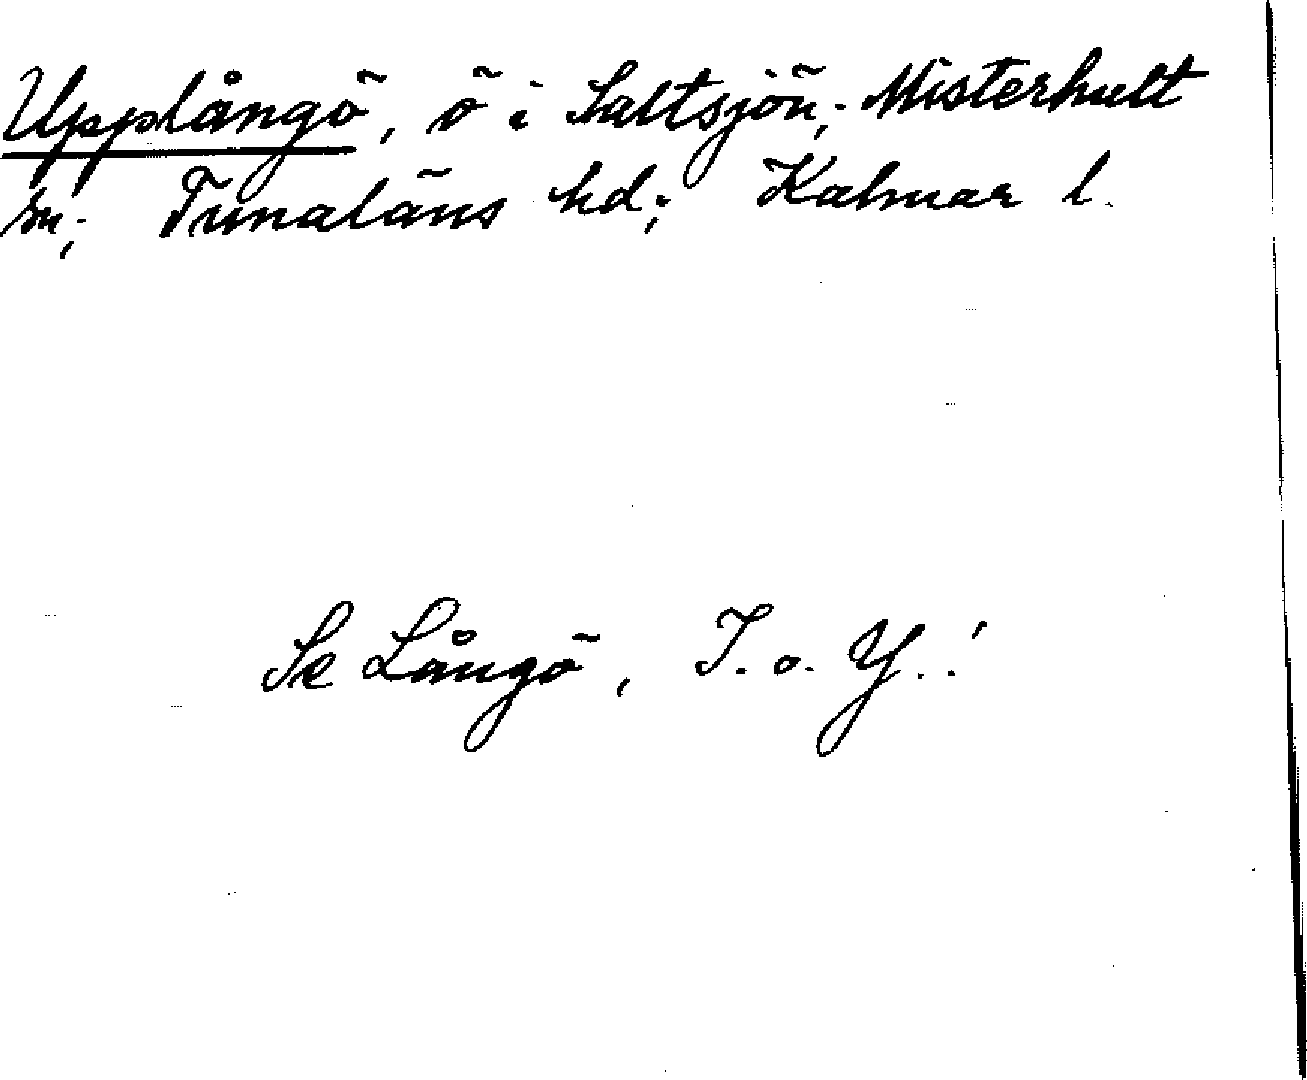 Upplångö, ö i Saltsjön; Misterhult
sn; Tunaläns hd; Kalmar l.
Se Långö, I. o. Y..!